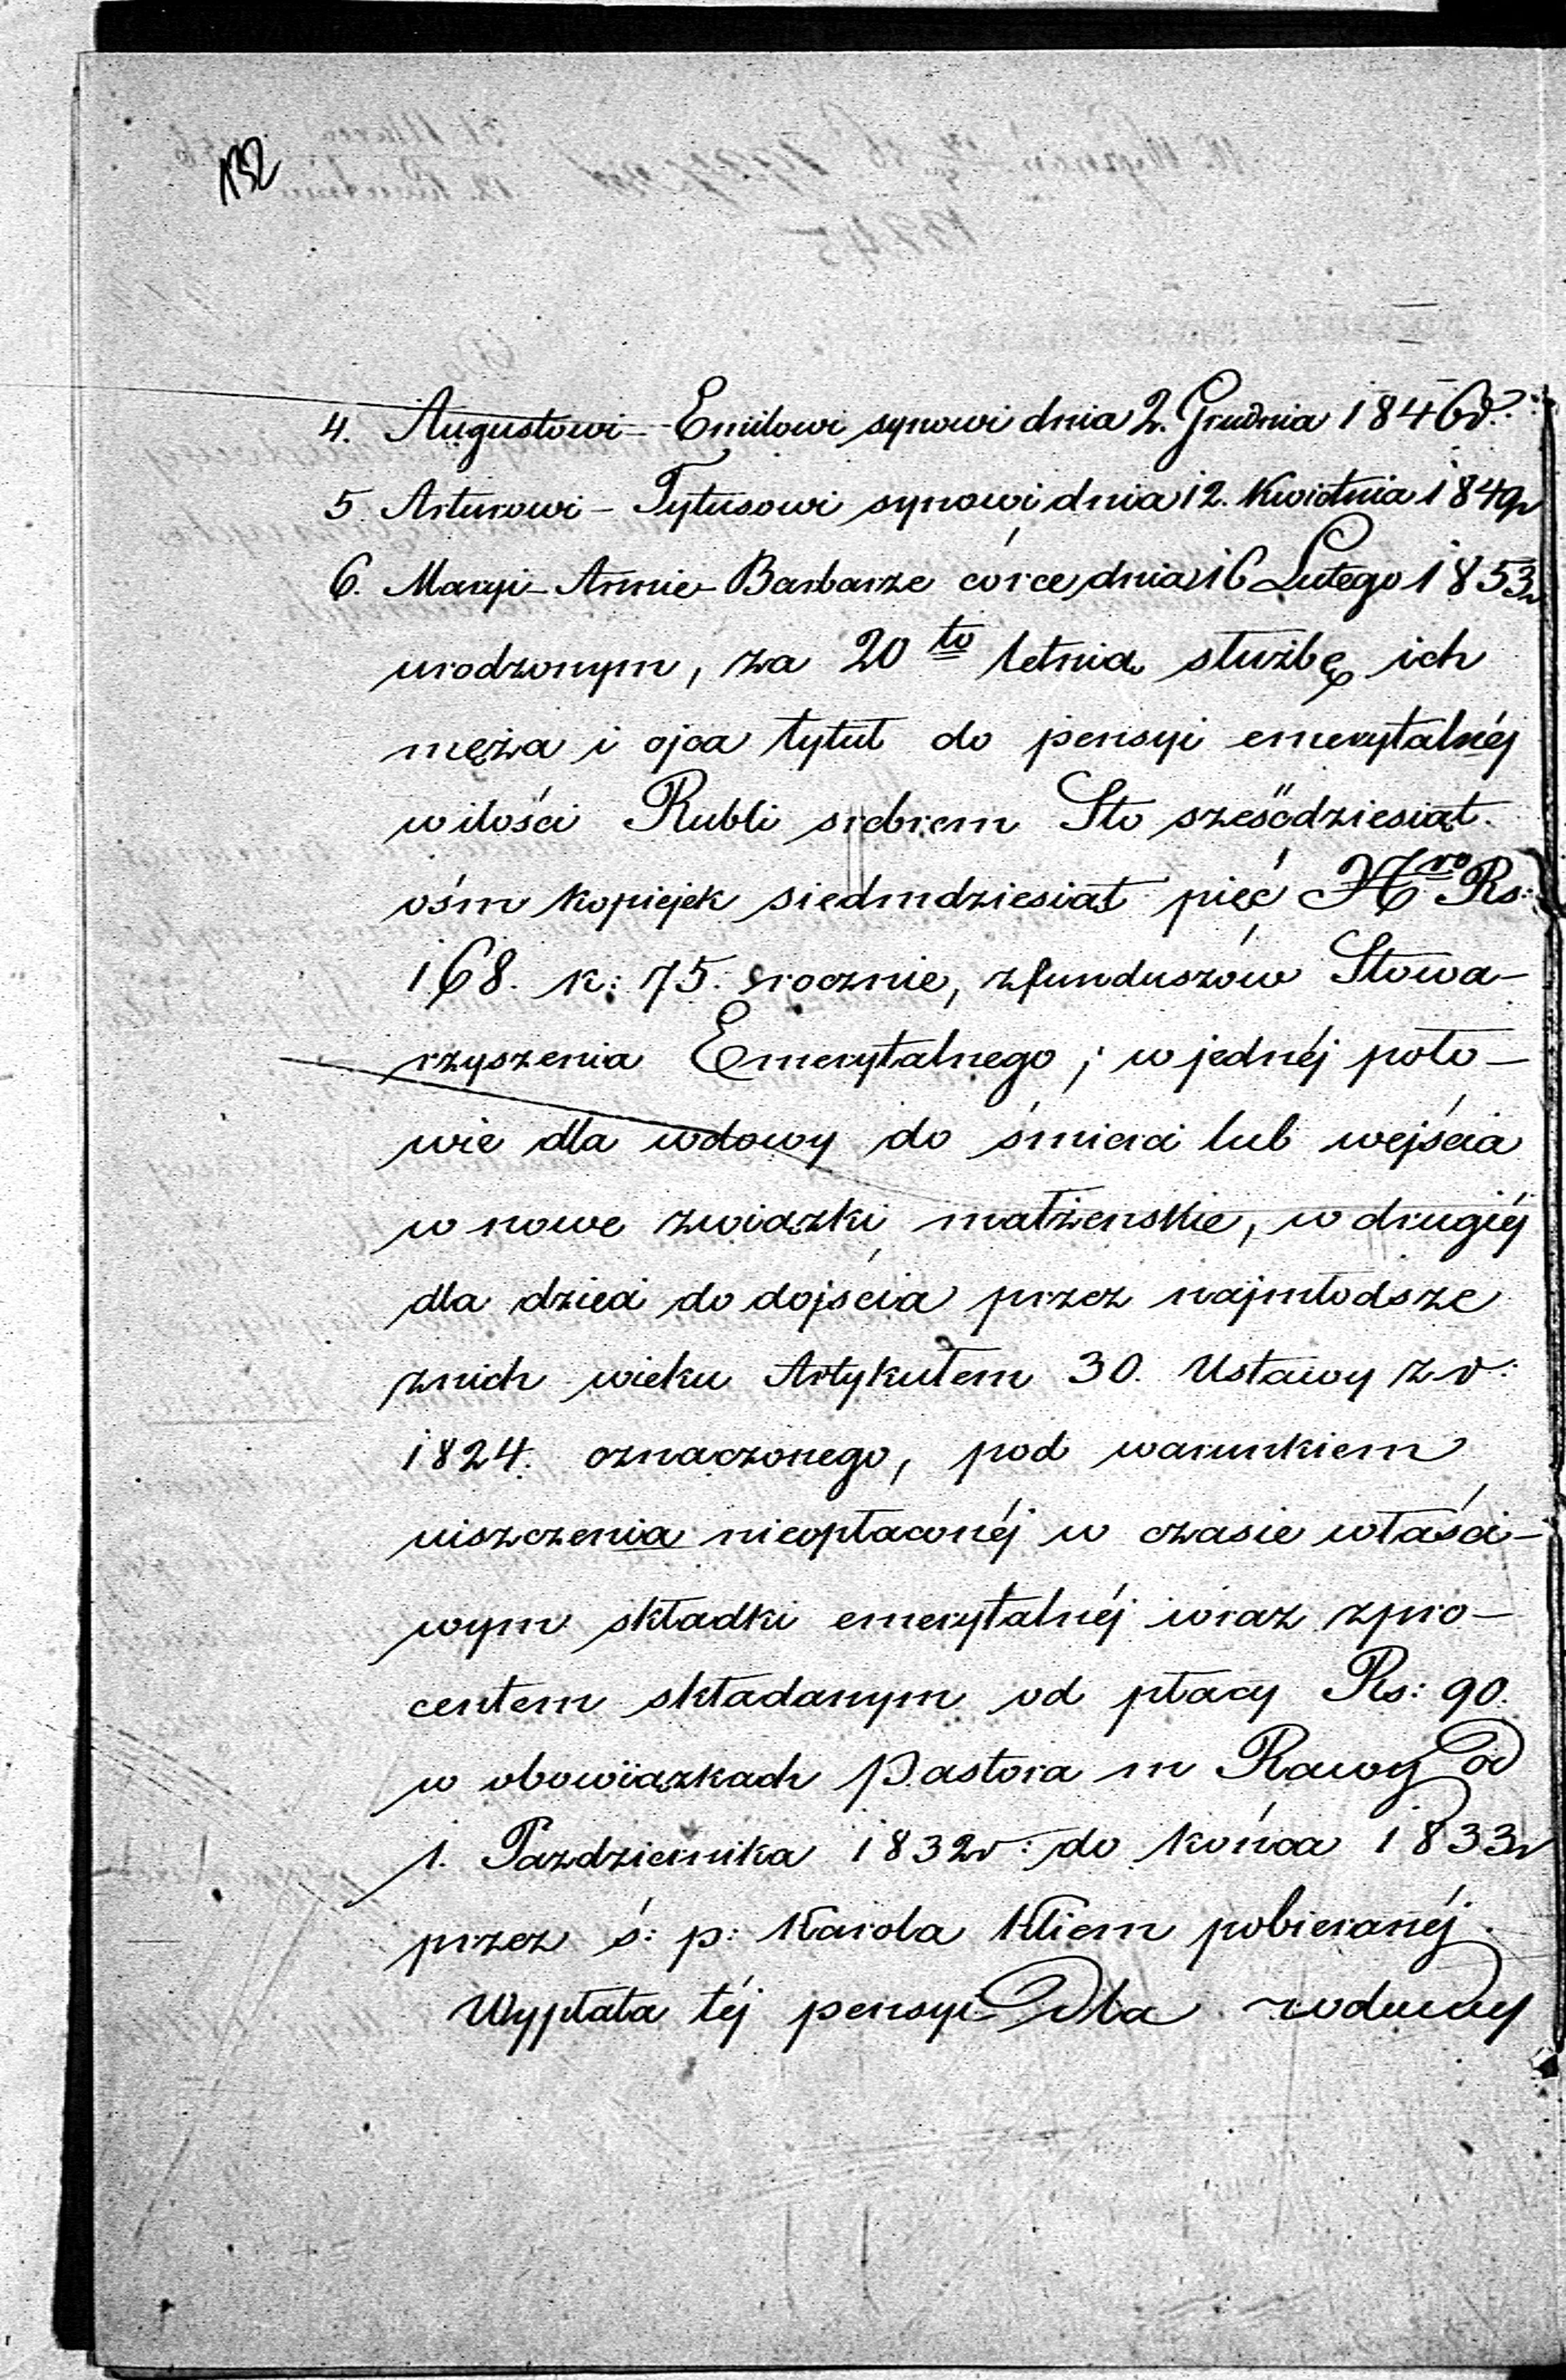 132
4. Augustowi-Emilowi synowi dnia 2. Grudnia 1846 r:
5. Arturowi-Tytusowi synowi dnia 12. Kwietnia 1849 r
6. Maryi-Annie-Barbarze córce dnia 16 Lutego 1853 r
urodzonym, za 20to letnią służbę ich
męża i ojca tytuł do pensyi emerytalnéj
w ilości Rubli srebrem Sto sześćdziesiąt
ośm kopiejek siedmdziesiąt pięć Nro Rs:
168. k: 75. rocznie, z funduszów Stowa-
rzyszenia Emerytalnego; w jednéj poło-
wie dla wdowy do śmierci lub wejścia
w nowe związki małżenskie, w drugiéj
dla dzieci do dojścia przez najmłodsze
z nich wieku Artykułem 30. Ustawy z r:
1824. oznaczonego, pod warunkiem
uiszczenia nieopłaconéj w czasie właści-
wym składki emerytalnéj wraz z pro-
centem składanym od płacy Rs: 90.
w obowiązkach Pastora m Rawy od
1. Pazdziernika 1832 r: do końca 1833 r
przez ś: p: Karola Kliem pobieranéj.
Wypłata téj pensyi dla wdowy